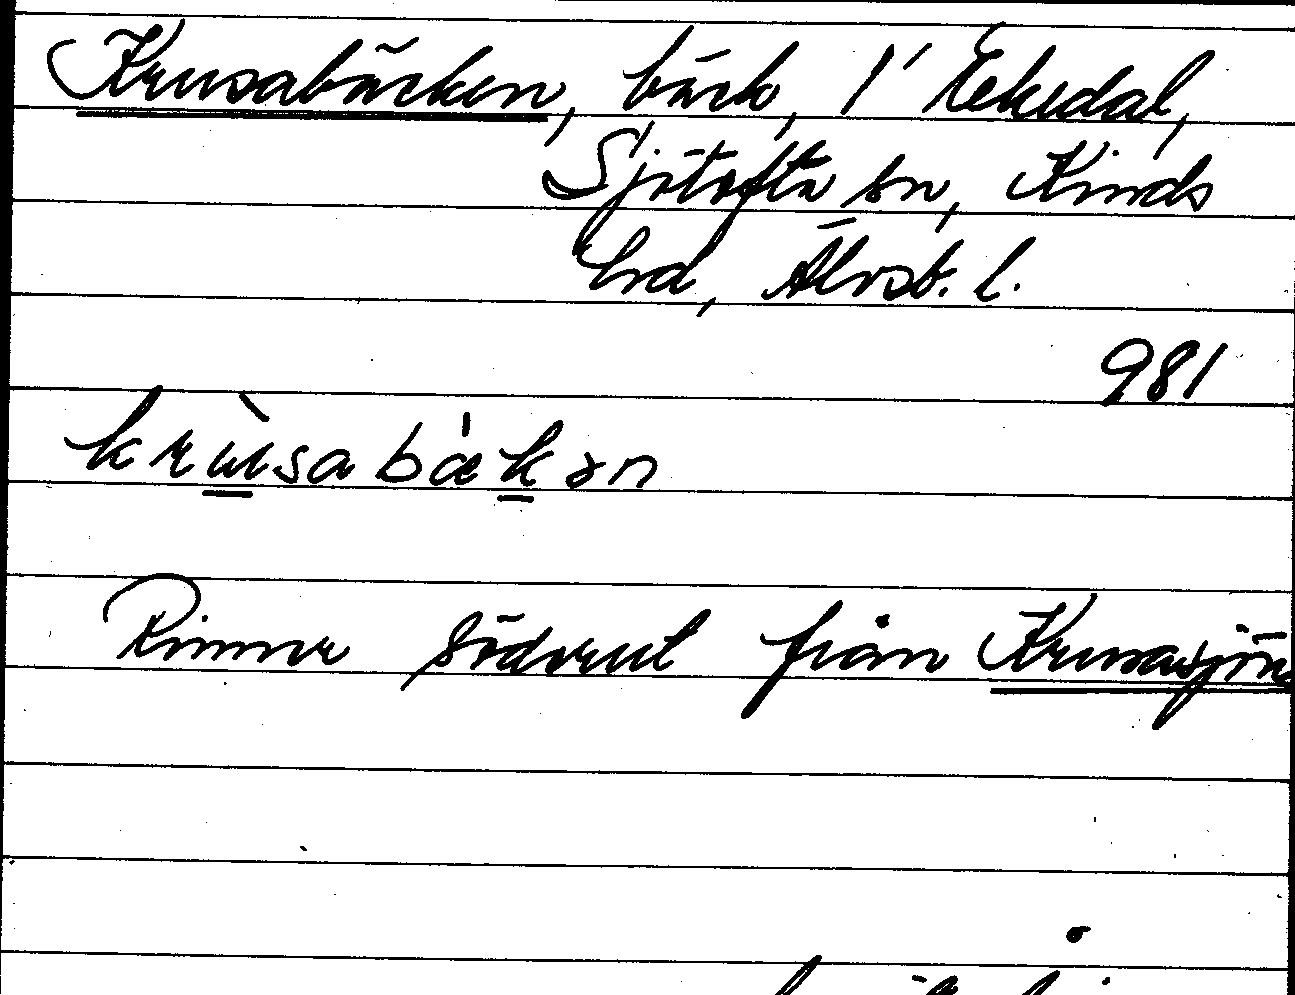 Krusabäcken, bäck, 1/ Ekedal,
Sjötofta sn, Kinds
hrd, Älvsb. l.
981
krùsabǽkən
Rinner söderut från Krusasjön